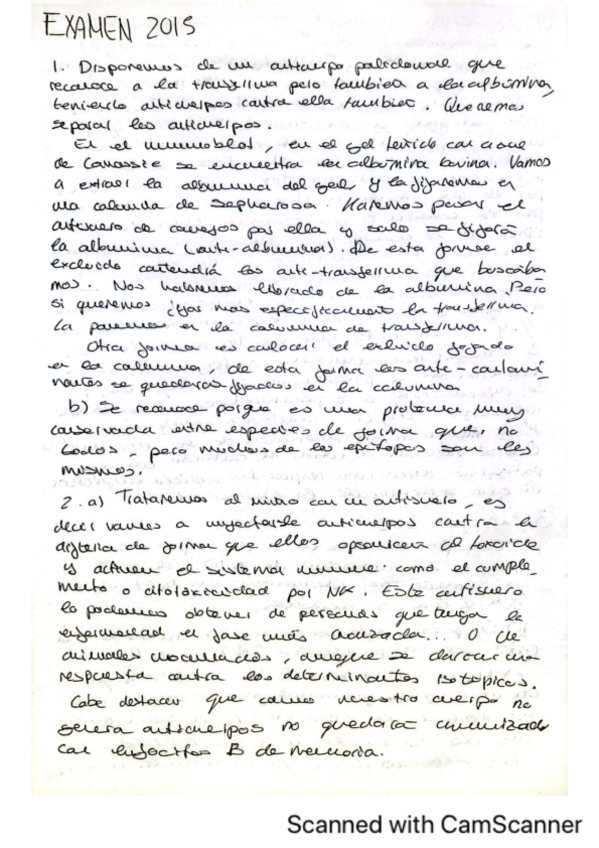 EXAMEN 2015
1. Disponemos de un anticuerpo policlonal que
reconoce a la transferrina pero tambien a la albúmina,
teniendo anticuerpos contra ella tambien. Queremos
separar los anticuerpos.
En el inmunoblot, en el gel teñido con azul
de Comassie se encuentra la albumina bovina. Vamos
a extraer la albumina del gel y la fijaremos en
una columna de sepharosa. Haremos pasar el
antisuero de conejos por ella y solo se fijará
la albumina (anti-albumina). De esta forma el
excluido contendrá los anti-transferrina que buscába-
mos. Nos habremos librado de la albumina. Pero
si queremos fijar más especificamente la transferrina.
La ponemos en la columna de transferrina.
Otra forma es colocar el extracto fijado
en la columna, de esta forma los anti-contami-
nantes se quedaran fijados en la columna
b) Se reconoce porque es una proteina muy
conservada entre especies de forma que, no
todos, pero muchos de los epitopos son los
mismos.
2. a) Trataremos al niño con un antisuero, es
decir vamos a inyectarle anticuerpos contra la
difteria de forma que ellos opsonicen al toxoide
y activen el sistema inmune como el comple-
mento o citotoxicidad por NK. Este antisuero
lo podemos obtener de personas que tenga la
enfermedad en fase más avanzada... O de
animales inoculados, aunque se daran una
respuesta contra los determinantes isotopicos.
Cabe destacar que como nuestro cuerpo no
genera anticuerpos no quedará inmunizado
con linfocitos B de memoria.
Scanned with CamScanner